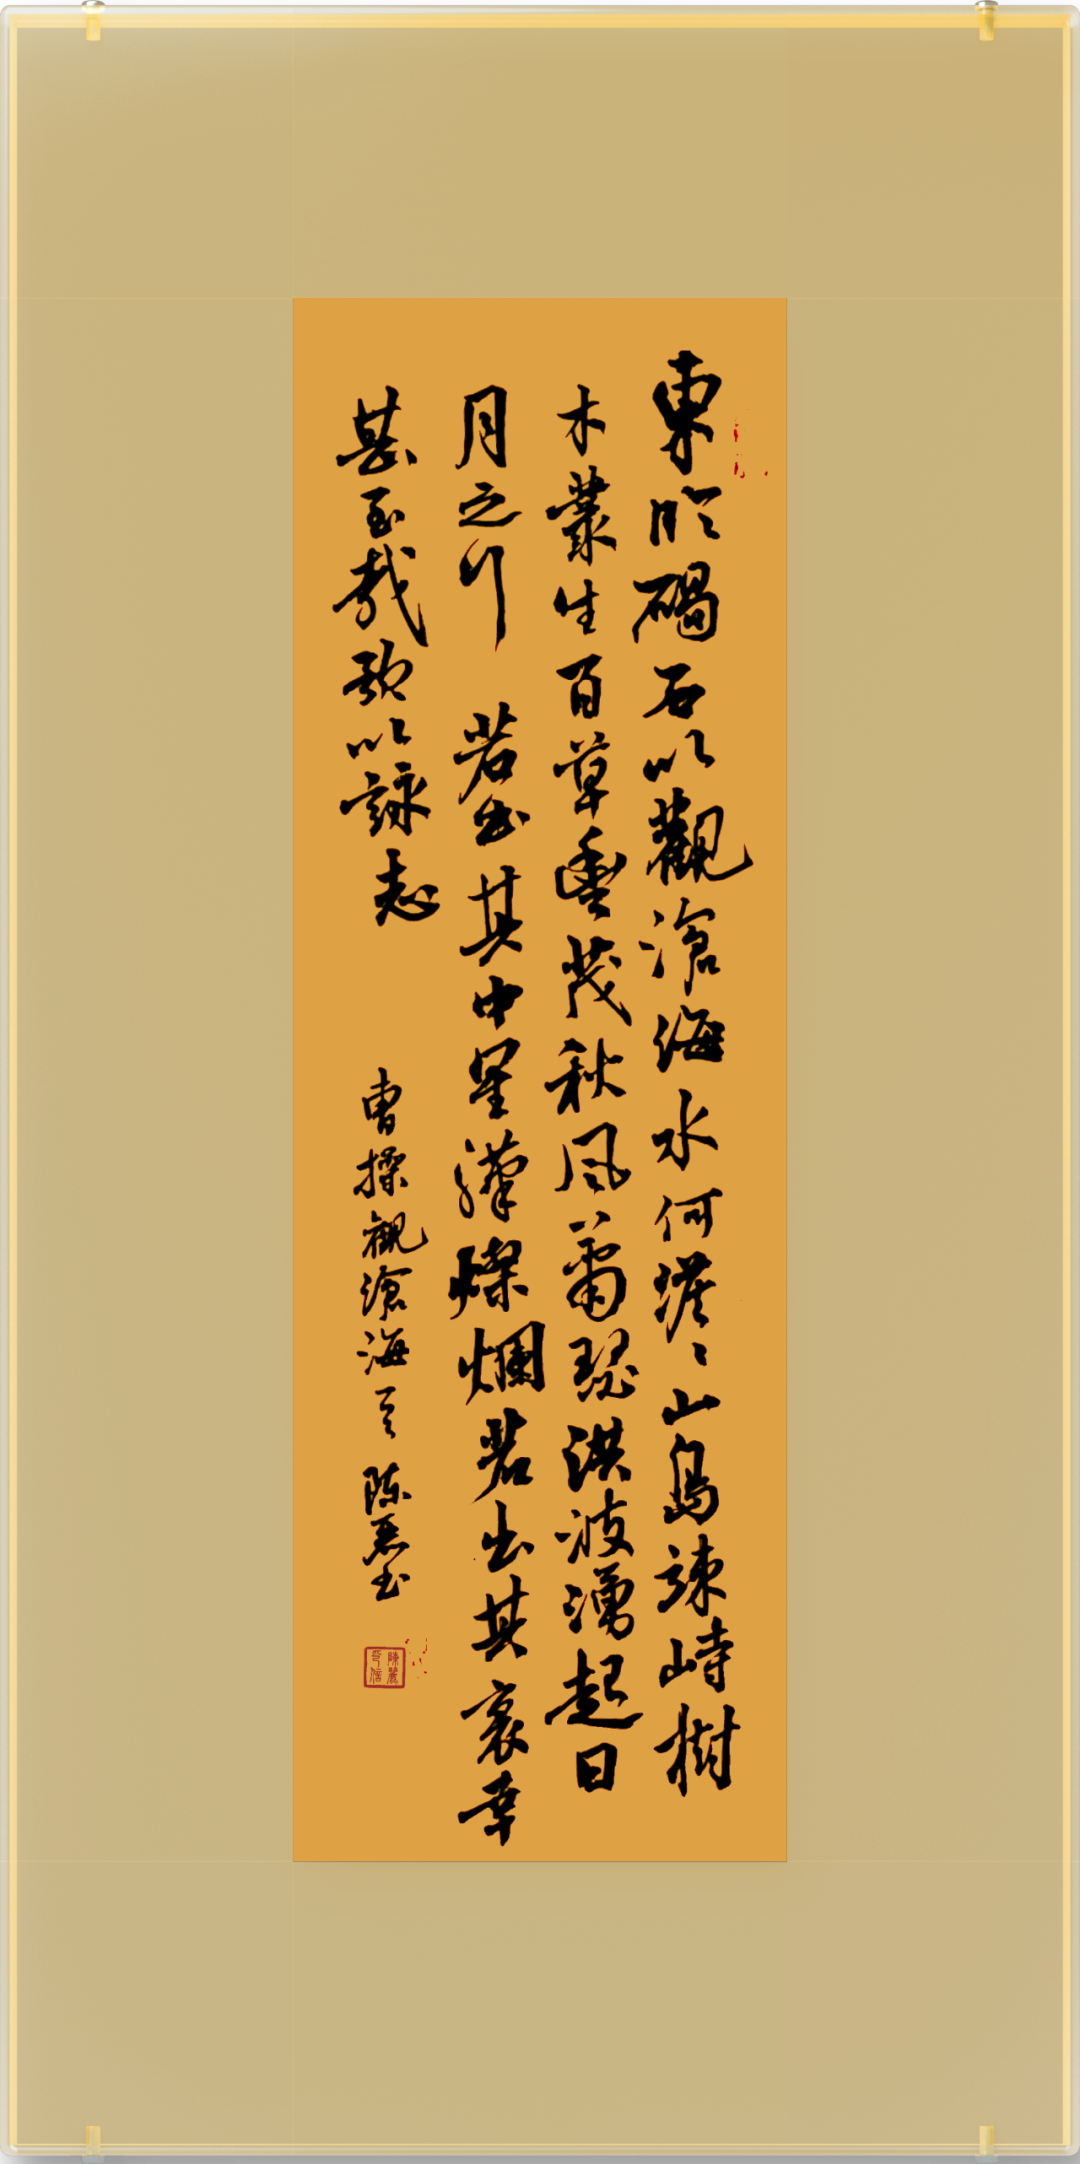 東臨碣石以觀滄海水何澹〻山島竦峙樹
木叢生百草豐茂秋風蕭瑟洪波湧起日
月之行若出其中星漢燦爛若出其裏幸
甚至哉歌以詠志
曹操觀滄海 陈